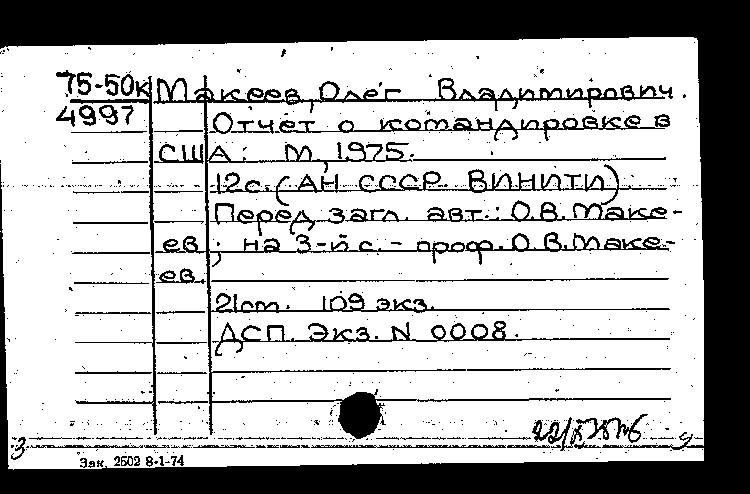 75-50к Макеев, Олег Владимирович.
4997 Отчет о командировке в
США: М, 1975.
12с. (АН СССР. ВИНИТИ)
Перед загл. авт.: О.В. Маке-
ев; на 3-й с. - проф. О.В. Маке-
ев.
21см. 109 экз.
ДСП. Экз. N 0008.
Зак. 2502 8-1-74